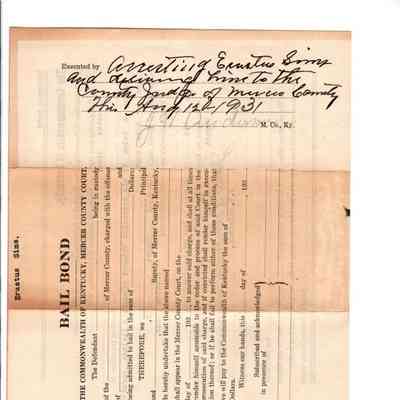 Executed by arresting Erastus Sims
and delivering him to the
County Judge of Mercer County
this Aug 12th 1931
M. Co., Ky.
Erastus Sims.
BAIL BOND
THE COMMONWEALTH OF KENTUCKY, MERCER COUNTY COURT,
The Defendant being in custody,
of the of Mercer County, charged with the offense
of and
being admitted to bail in the sum of Dollars:
THEREFORE, we Principal
and Surety, of Mercer County, Kentucky,
do hereby undertake that the above named
shall appear in the Mercer County Court, on the
day of 193 , to answer said charge, and shall at all times
render himself amenable to the order and process of said Court in the
prosecution of said charge, and if convicted shall render himself in execu-
tion thereof; or if he shall fail to perform either of these conditions, that
we will pay to the Commonwealth of Kentucky the sum of
Dollars.
Witness our hands, this day of 193
Subscribed and acknowledged
in presence of